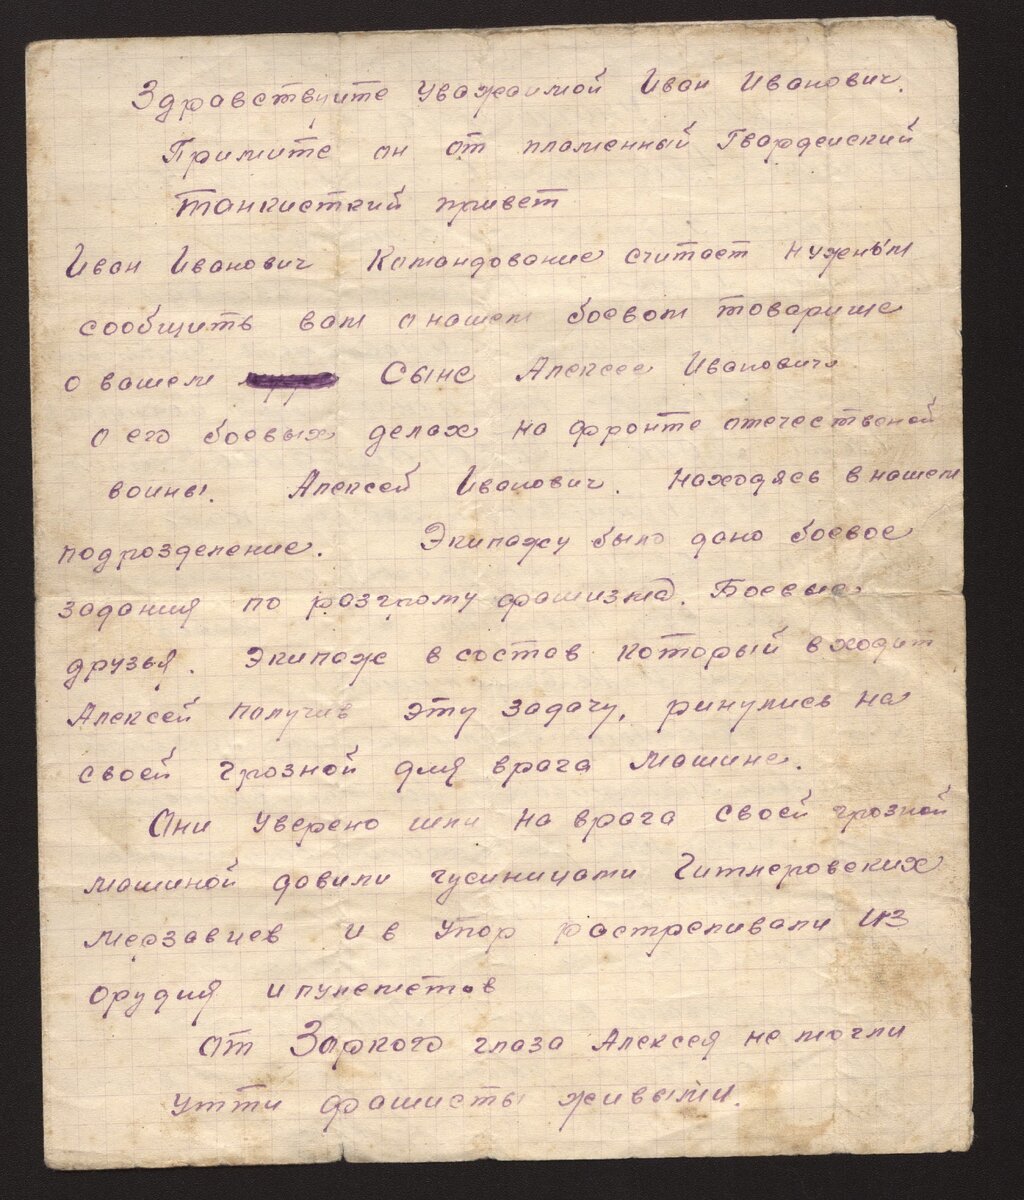 Здравствуите Уважаимой Иван Иванович.
Примите он от пламенный Гвардеиский
танкисткий привет
Иван Иванович Командование считает нужным
сообщить вам о нашем боевом товарище
о вашем Сыне Алексее Ивановиче
о его боевых делах на фронте отечественой
воины. Алексей Иванович. Находясь в нашем
подрозделение. Экипажу было дано боевое
задания по разгрому фашизма. Боевые
друзья. Экипаж в состав который входит
Алексей получив эту задачу, ринулись на
своей грозной для врага машине.
Они уверено шли на врага своей грозной
машиной давили гусиницами Гитлеровских
мерзавцев и в упор растреливали из
орудия и пулеметов
От Заркого глаза Алексея не могли
утти фашисты живыми.